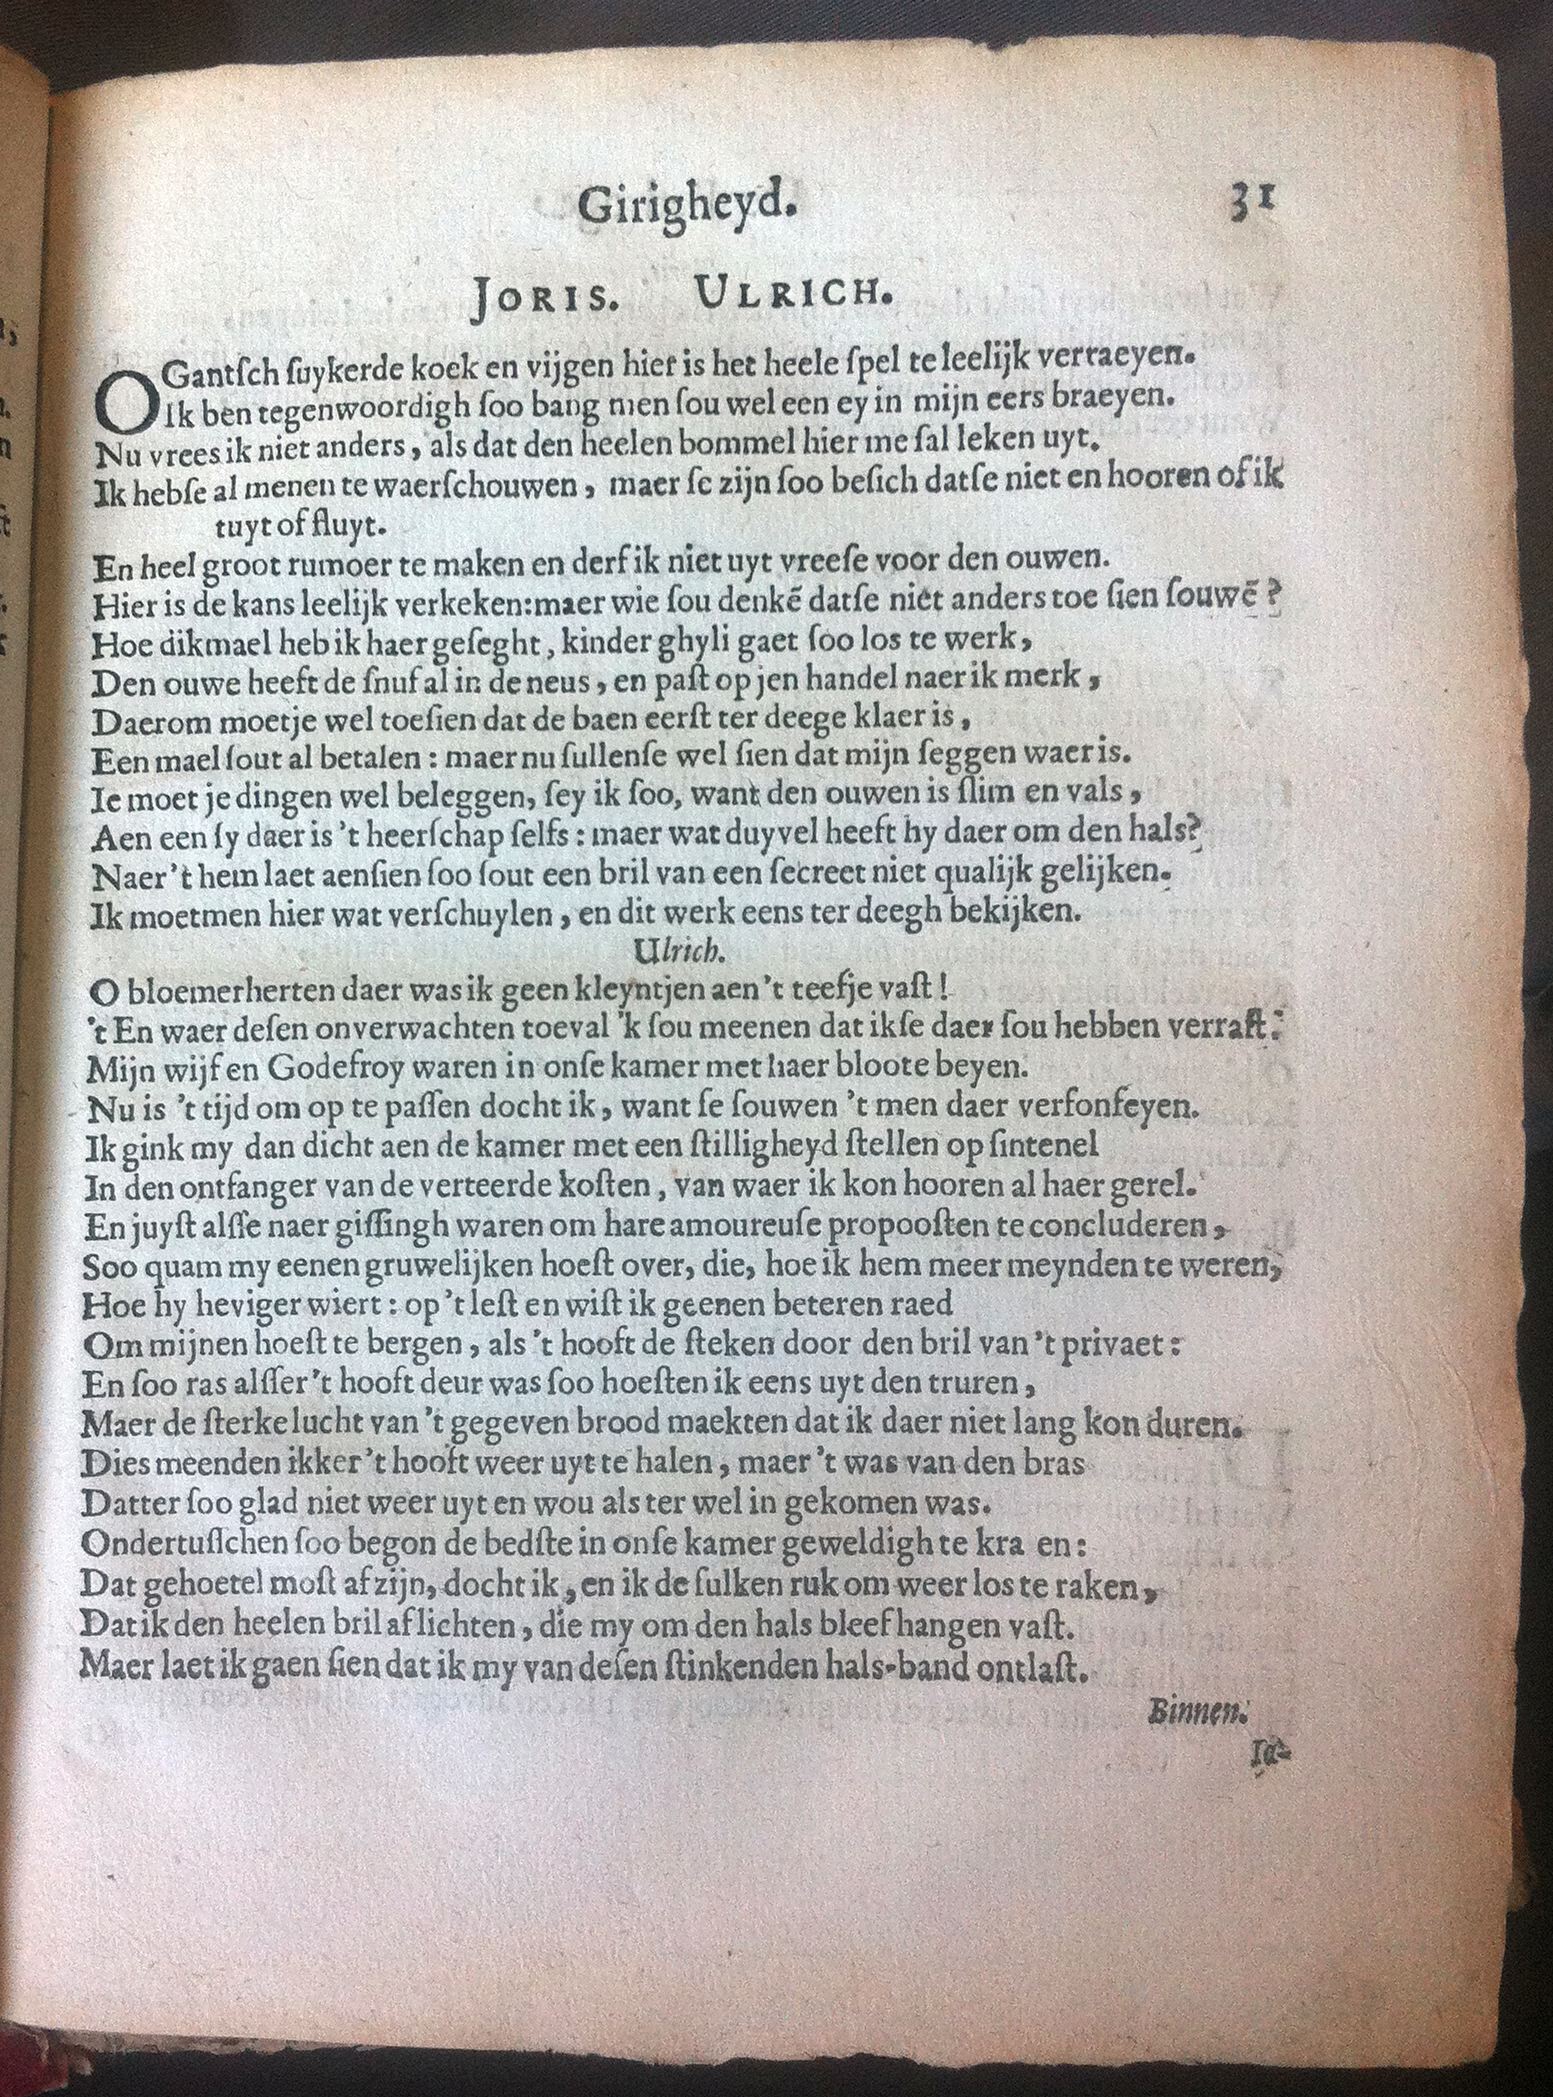 Girigheyd. 31
JORIS. ULRICH.
O Gantſch ſuykerde koek en vijgen hier is het heele ſpel te leelijk verraeyen.
Ik ben tegenwoordigh ſoo bang men ſou wel een ey in mijn eers braeyen.
Nu vrees ik niet anders, als dat den heelen bommel hier me ſal leken uyt.
Ik hebſe al menen te waerſchouwen, maer ſe zijn ſoo beſich datſe niet en hooren of ik
tuyt of fluyt.
En heel groot rumoer te maken en derf ik niet uyt vreeſe voor den ouwen.
Hier is de kans leelijk verkeken: maer wie ſou denkẽ datſe niet anders toe ſien ſouwẽ?
Hoe dikmael heb ik haer geſeght, kinder ghyli gaet ſoo los te werk,
Den ouwe heeft de ſnuf al in de neus, en paſt op jen handel naer ik merk,
Daerom moetje wel toeſien dat de baen eerſt ter deege klaer is,
Een mael ſout al betalen: maer nu ſullenſe wel ſien dat mijn ſeggen waer is.
Je moet je dingen wel beleggen, ſey ik ſoo, want den ouwen is ſlim en vals,
Aen een ſy daer is 't heerſchap ſelfs: maer wat duyvel heeft hy daer om den hals?
Naer 't hem laet aenſien ſoo ſout een bril van een ſecreet niet qualijk gelijken.
Ik moetmen hier wat verſchuylen, en dit werk eens ter deegh bekijken.
Ulrich.
O bloemerherten daer was ik geen kleyntjen aen 't teefje vaſt!
't En waer deſen onverwachten toeval 'k ſou meenen dat ikſe daer ſou hebben verraſt.
Mijn wijf en Godefroy waren in onſe kamer met haer bloote beyen.
Nu is 't tijd om op te paſſen docht ik, want ſe ſouwen 't men daer verfonfeyen.
Ik gink my dan dicht aen de kamer met een ſtilligheyd ſtellen op ſintenel
In den ontfanger van de verteerde koſten, van waer ik kon hooren al haer gerel.
En juyſt alſſe naer giſſingh waren om hare amoureuſe propooſten te concluderen,
Soo quam my eenen gruwelijken hoeſt over, die, hoe ik hem meer meynden te weren,
Hoe hy heviger wiert: op 't leſt en wiſt ik geenen beteren raed
Om mijnen hoeſt te bergen, als 't hooft de ſteken door den bril van 't privaet:
En ſoo ras alſſer 't hooft deur was ſoo hoeſten ik eens uyt den truren,
Maer de ſterke lucht van 't gegeven brood maekten dat ik daer niet lang kon duren.
Dies meenden ikker 't hooft weer uyt te halen, maer 't was van den bras
Datter ſoo glad niet weer uyt en wou als ter wel in gekomen was.
Ondertuſſchen ſoo begon de bedſte in onſe kamer geweldigh te kra en:
Dat gehoetel moſt af zijn, docht ik, en ik de ſulken ruk om weer los te raken,
Dat ik den heelen bril aflichten, die my om den hals bleef hangen vaſt.
Maer laet ik gaen ſien dat ik my van deſen ſtinkenden hals-band ontlaſt.
Binnen.
Ia-